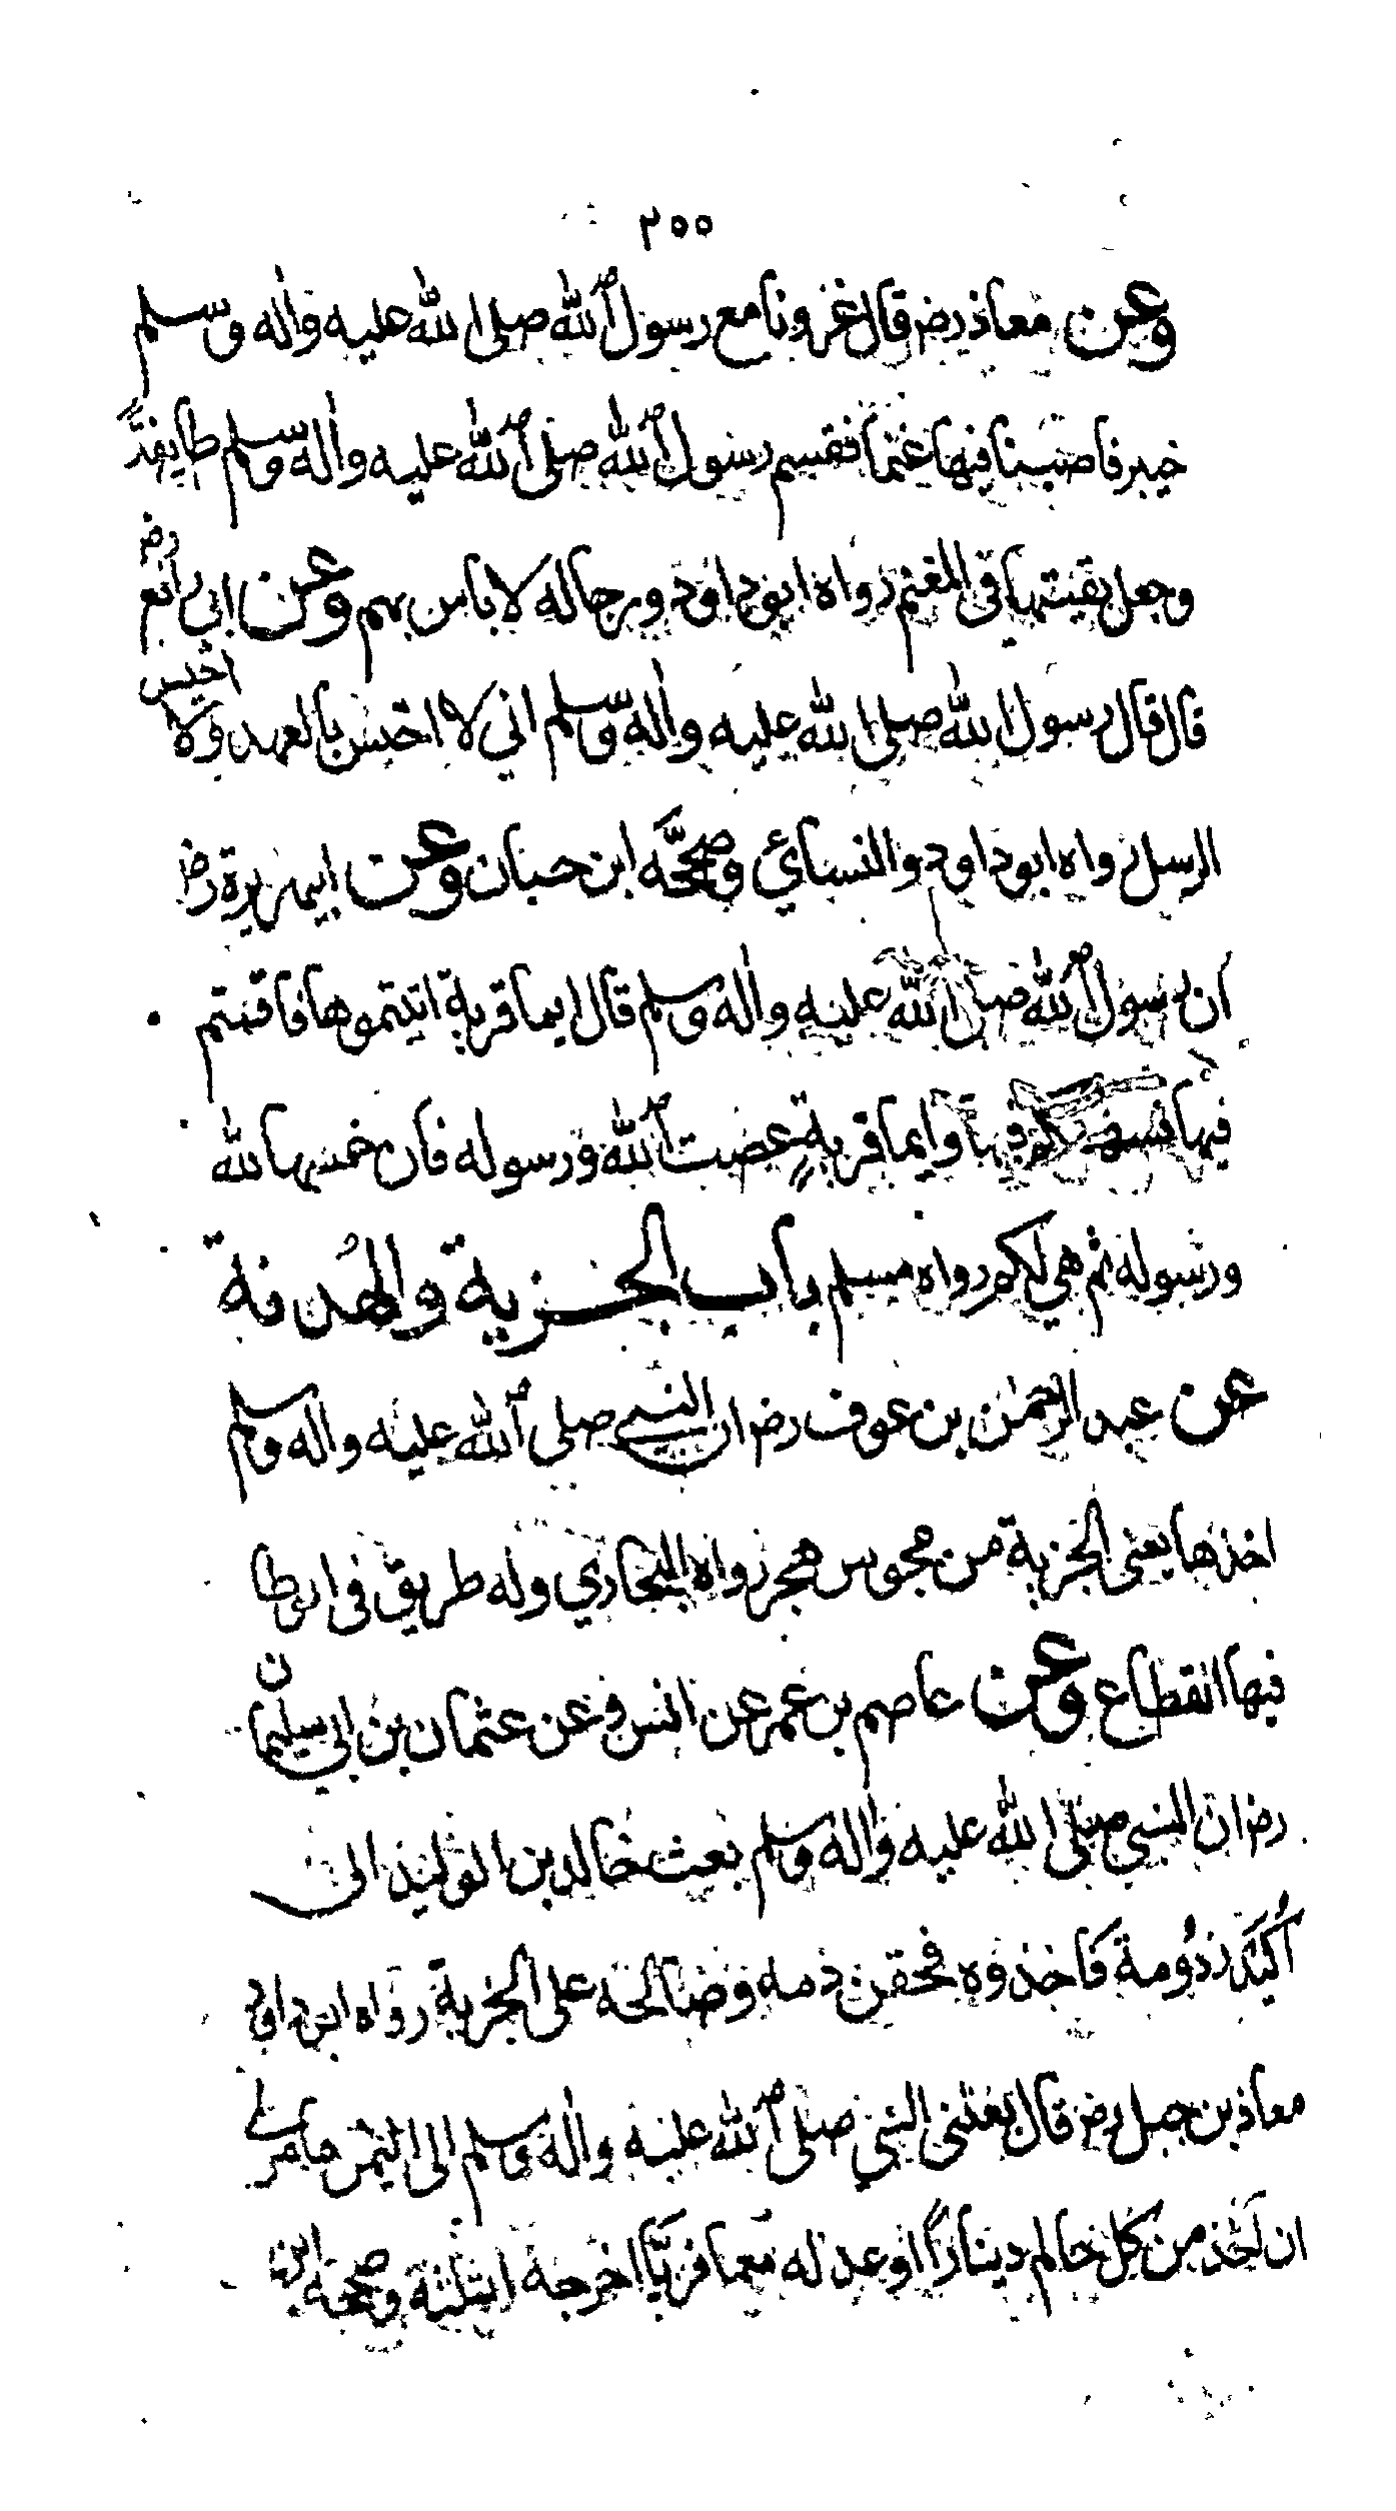 ٢٥٥
وعن معاذ رض قال غزونا مع رسول الله صلى الله عليه واله وسلم
خيبر فاصبنا فيها غنما فقسم رسول الله صلى الله عليه واله وسلم طايفةً
وجعل بقيتها في المغنم رواه ابو داود ورجاله لا باس بهم وعن ابي رافع رض
قال قال رسول الله صلى الله عليه واله وسلم اني لا اخيس بالعهد ولا احبس
الرسل رواه ابو داود والنسائي وصححه ابن حبان وعن ابي هريرة رض
ان رسول الله صلى الله عليه واله وسلم قال ايما قرية اتيتموها فاقمتم
فيها فسهمكم فيها وايما قريةٍ عصت الله ورسوله فان خمسها لله
ورسوله ثم هي لكم رواه مسلم باب الجزية والهُدنة
عن عبد الرحمٰن بن عوف رض ان النبي صلى الله عليه واله وسلم
اخذها يعني الجزية من مجوس هجر رواه البخاري وله طريق في الموطا
فيها انقطاع وعن عاصم بن عمر عن انس وعن عثمان بن ابي سليمان
رض ان النبي صلى الله عليه واله وسلم بعث خالد بن الوليد الى
اُكَيدر دُومة فاخذوه فحقن دمه وصالحه على الجزية رواه ابو داود
معاذ بن جبل رض قال بعثني النبي صلى الله عليه واله وسلم الى اليمن فامرني
ان آخذ من كل حالم دينارًا او عدله معافريًّا اخرجه الثلثة وصححه ابن